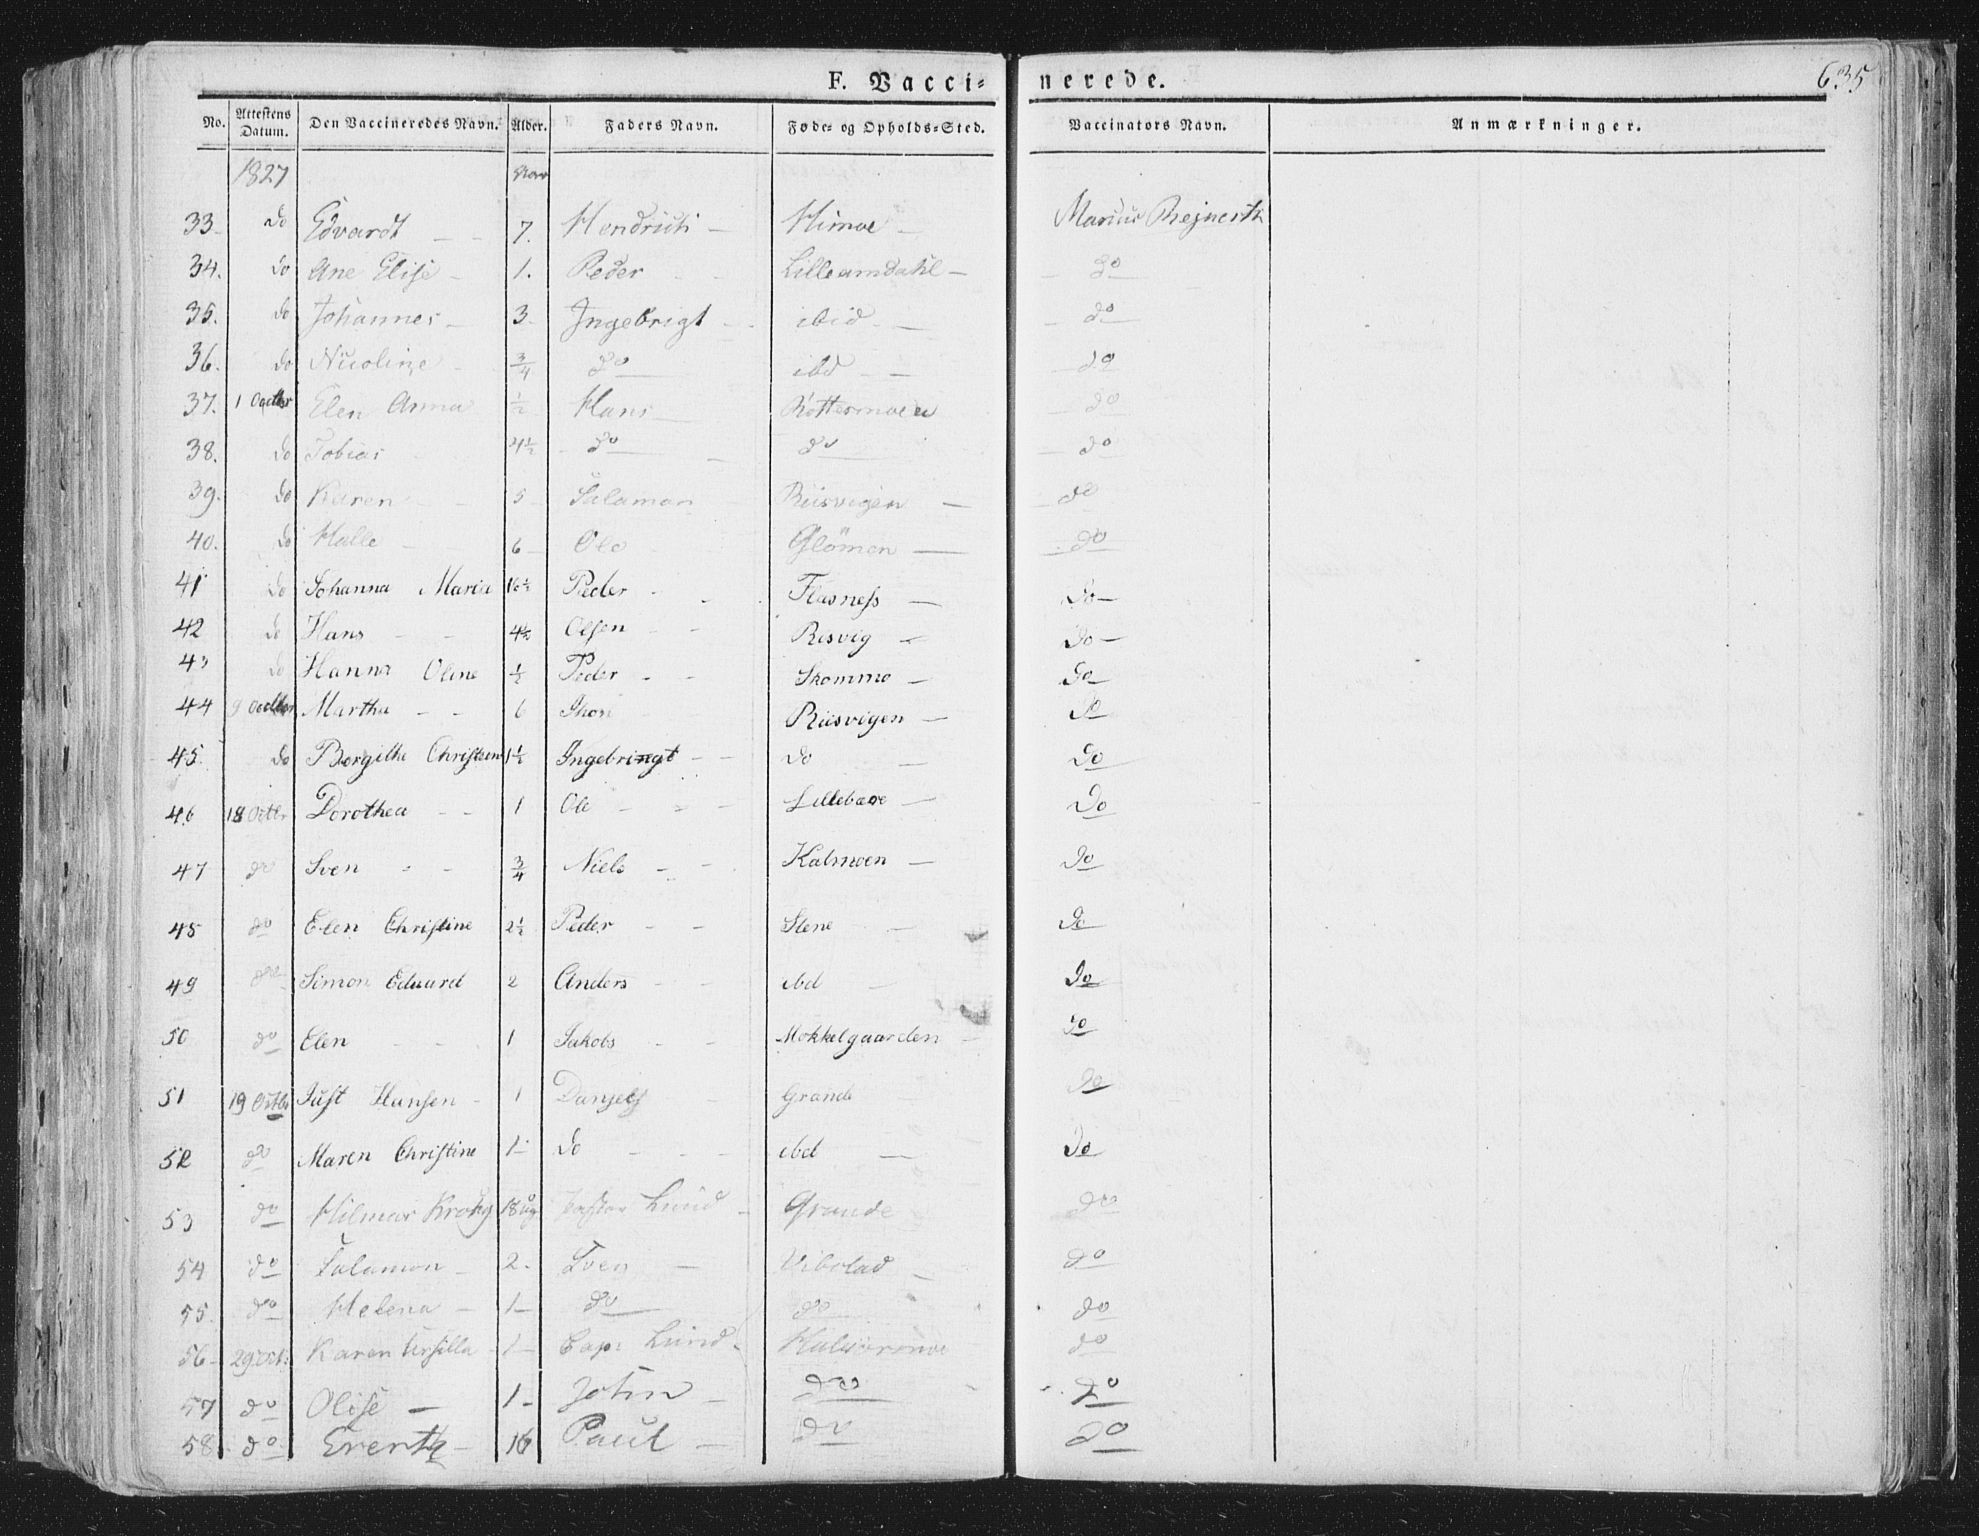 F. Vacci- nerede. 635
No. Attestens Datum. Den Vaccineredes Navn. Alder. Faders Navn. Føde- og Opholds-Sted. Vaccinators Navn. Anmærkninger.
1827
33. do Edvardt 7. Hendrich Himoe Marius
34. do Ane Elise 1. Peder Lilleamdahl do
35. do Johannes 3. Ingebrigt ibid do
36. do Nicoline 3/4 do ibd do
37. 1 Octbr Elen Anna 1/2 Hans Kottermoen do
38. do Tobias 4½ do do do
39. do Karen 5 Salamon Riisvigen do
40. do Halle 6 Ole Glömen do
41 do Johanna Maria 16½ Peder Flasness do
42 do Hans 4½ Olsen Risvig do
43 do Hanna Oline ½ Peder Skommo do
44 9 Octbr Martha 6 Jhon Riisvigen do
45. do Bergithe Christine 1½ Ingebringt do do
46 18 Octbr Dorothea 1 Ole Lillebaee do
47 do Sven 3/4 Niels Kalmoen do
48 do Elen Christine 2½ Peder Stene do
49 do Simon Eduard 2 Anders ibd do
50 do Elen 1 Jakobs Mokkelgaarden do
51 19 Octbr Just Hansen 1 Danjels Grande do
52 do Maren Christine 1 do ibd do
53 do Hilmar Krohg 18 Ug Pastor Lund Grande do
54 do Salamon 2. Sven Vibstad do
55. do Helena 1 do do do
56 29 Oct. Karen Ursilla 1 Capt Lund do
57 do Olise 1 John do do
58. do Ererth 16 Paul do do